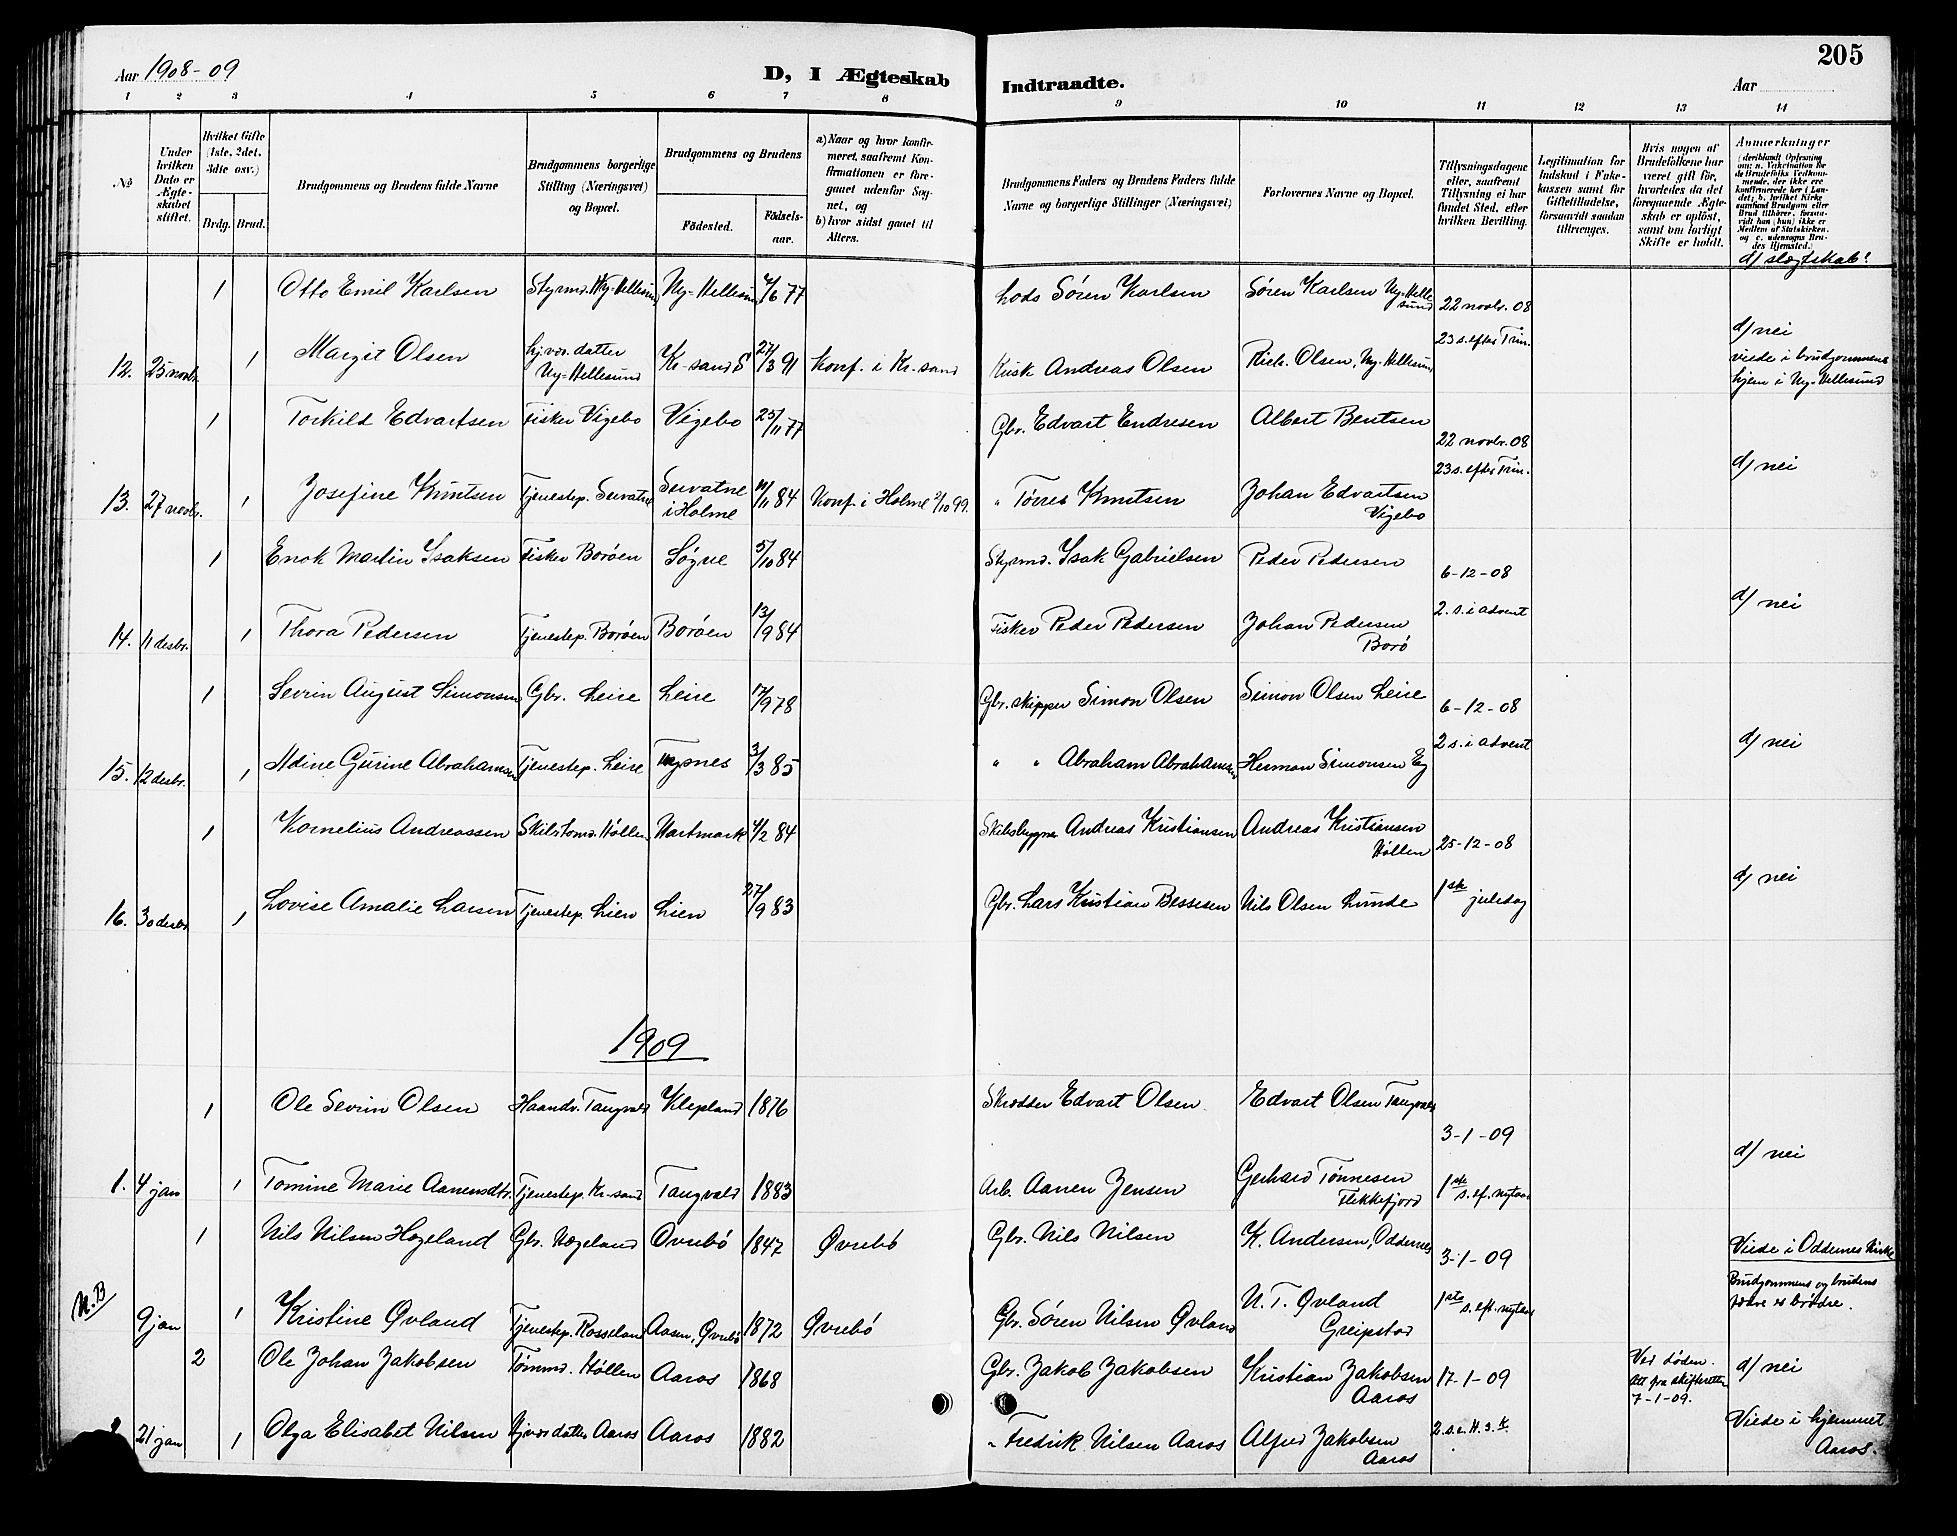 205
Aar 1908-09
D, I Ægteskab Indtraadte.
Aar
1 2 3 4 5 6 7 8 9 10 11 12 13 14
No
Under hvilken Dato er Ægteskabet stiftet.
Hvilket Gifte (1ste, 2det, 3die osv.)
Brdg. Brud.
Brudgommens og Brudens fulde Navne
Brudgommens borgerlige Stilling (Næringsvei) og Bopæl.
Brudgommens og Brudens
Fødested.
Fødselsaar.
a) Naar og hvor konfirmeret, saafremt Konfirmationen er foregaaet udenfor Sognet, og
b) hvor sidst gaaet til Alters.
Brudgommens Faders og Brudens Faders fulde Navne og borgerlige Stillinger (Næringsvei)
Forlovernes Navne og Bopæl.
Tillysningsdagene eller, saafremt Tillysning ei har fundet Sted, efter hvilken Bevilling.
Legitimation for Indskud i Enkekassen samt for Giftetilladelse, forsaavidt saadan tiltrænges.
Hvis nogen af Brudefolkene har været gift før, hvorledes da det foregaaende Ægteskab er opløst, samt om lovligt Skifte er holdt.
Anmerkninger
(deriblandt Oplysning om: a. Vakcination for de Brudefolks Vedkommende, der ikke ere konfirmerede her i Landet; b. hvilket Kirkesamfund Brudgom eller Brud tilhører, forsaavidt han (hun) ikke er Medlem af Statskirken, og c. udensogns Brudes Hjemsted.)
d/ slægtskab?
1 Otto Emil Karlsen Styrmd. Ny-Hellesund Ny-Hellesund 4/6 77 Lods Søren Karlsen Søren Karlsen Ny-Hellesund 22 novbr. 08
23 s. efter Trin. d/ nei
12. 25 novbr. 1 Margit Olsen hjvær. datter Ny-Hellesund Kr-sand S 27/3 91 Konf. i Kr-sand Kusk Andreas Olsen Rich. Olsen, Ny-Hellesund viede i brudgommens hjem i Ny-Hellesund
1 Torkild Edvartsen Fisker Vigebo Vigebo 25/11 77 Gbr. Edvart Endresen Albert Bentsen 22 novbr. 08
23 s. efter Trin. d/ nei
13. 27 novbr. 1 Josefine Knutsen Tjenestep. Servatne Servatne i Holme 19/11 84 Konf. i Holme 1/10 99. " Tørres Knutsen Johan Edvartsen Vigebo
1 Enok Martin Isaksen Fisker Borøen Søgne 5/10 84 Styrmd. Isak Gabrielsen Peder Pedersen 6-12-08
2. s. i advent d/ nei
14. 11 desbr. 1 Thora Pedersen Tjenestep. Borøen Borøen 13/9 84 Fisker Peder Pedersen Johan Pedersen Borø
1 Sevrin August Simonsen Gbr. Leire Leire 17/9 78 Gbr. skipper Simon Olsen Simon Olsen Leire 6-12-08
2 s. i advent d/ nei
15. 12 desbr. 1 Adine Gurine Abrahamsen Tjenestep. Leire 3/3 85 " " Abraham Abrahamsen Herman Simonsen Eg
1 Kornelius Andreassen Skibstømd. Høllen Hartmark 4/2 84 Skibsbygger Andreas Kristiansen Andreas Kristiansen Høllen 25-12-08
1ste juledag d/ nei
16. 30 desbr. 1 Lovise Amalie Larsen Tjenestep. Lien Lien 27/9 83 Gbr. Lars Kristian Bessesen Nils Olsen Lunde
1909
1 Ole Sevrin Olsen Haandv. Tangvald Klepland 1876 Skrædder Edvart Olsen Edvart Olsen Tangvald
3-1-09
d/ nei
1. 4 jan 1 Tomine Marie Aanensdtr. Tjenestep. Kr-sand Tangvald 1883 Arb. Aanen Jensen Gerhard Tønnesen Flekkefjord 1ste s. ef. nytaar
1 Nils Nilsen Hægeland Gbr. Hægeland Øvrebø 1847 Øvrebø Gbr. Nils Nilsen K. Andersen, Oddernes 3-1-09 Viede i Oddernes Kirke
N.B 9 jan 1 Kristine Øvland Tjenestep. Rosseland Aasen, Øvrebø 1872 Øvrebø Gbr. Søren Nilsen Øvland N. T. Øvland Greipstad 1ste s. eft. nytaar Brudgommens og brudens fædre er brødre.
2 Ole Johan Jakobsen Tømmd. Høllen Aaros 1868 Gbr. Jakob Jakobsen Kristian Jakobsen Aaros 17-1-09 Ved døden. Att fra skifteretten 7-1-09. d/ nei
21 jan 1 Olga Elisabet Nilsen Hjvær. datter Aaros Aaros 1882 " Fredrik Nilsen Aaros Alfred Jakobsen Aaros 2. s. e. H. 3. K. Viede i hjemmet Aaros.